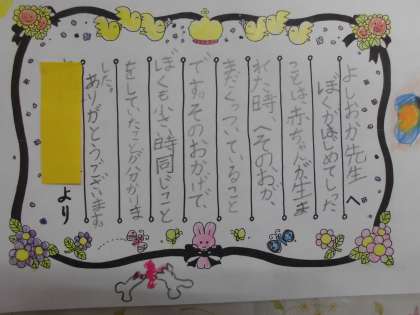 よしおか先生へ
ぼくがはじめてしった
ことは、赤ちゃんが生ま
れた時、へそのおが、
まだくっついていること
です。そのおかげで、
ぼくも小さい時同じこと
をしていたことが分かりま
した。
ありがとうございます。
より